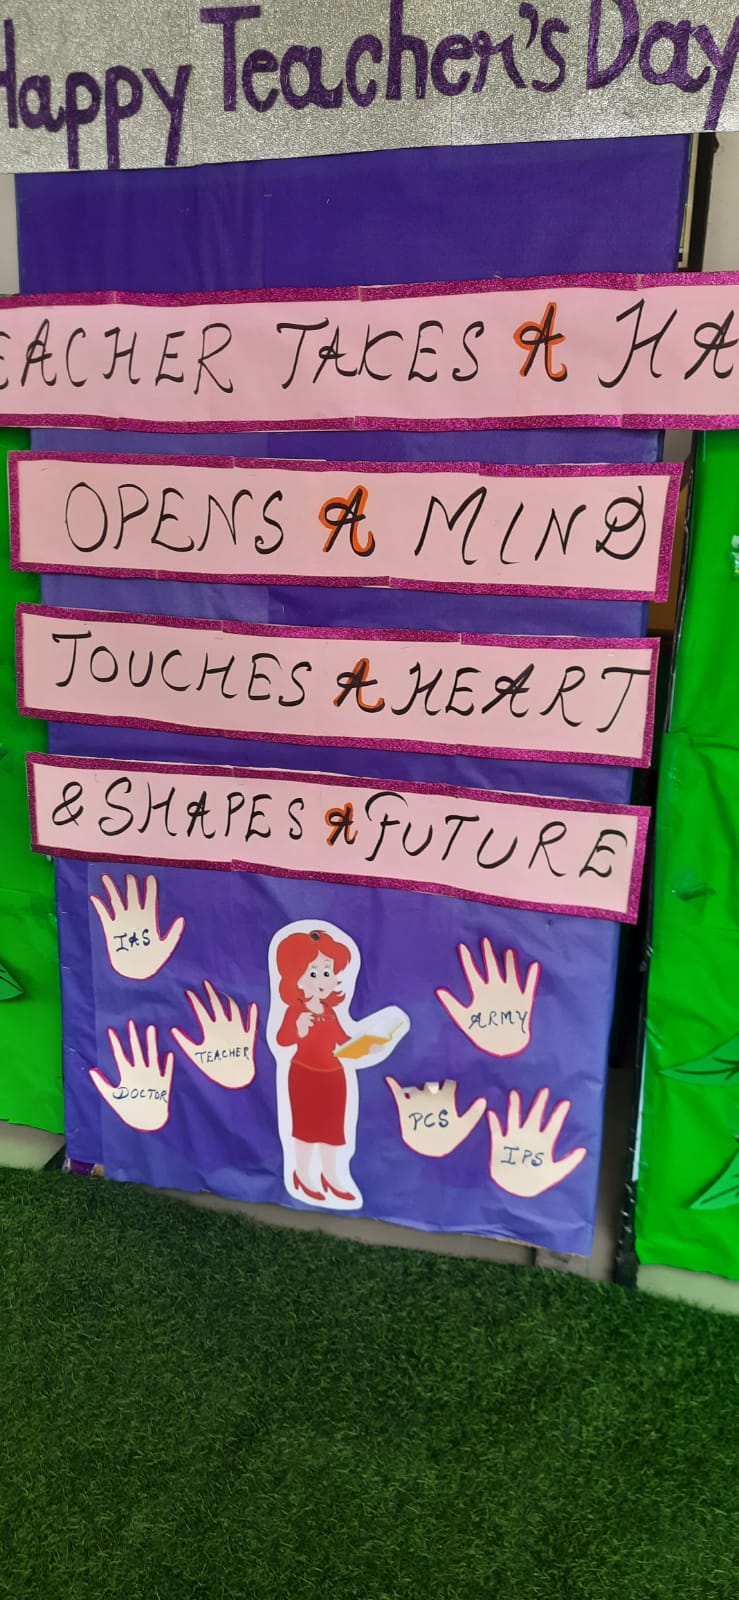 Happy Teacher's Day
EACHER TAKES A HA
OPENS A MIND
TOUCHES A HEART
& SHAPES A FUTURE
IAS
ARMY
TEACHER
DOCTOR
PCS
IPS